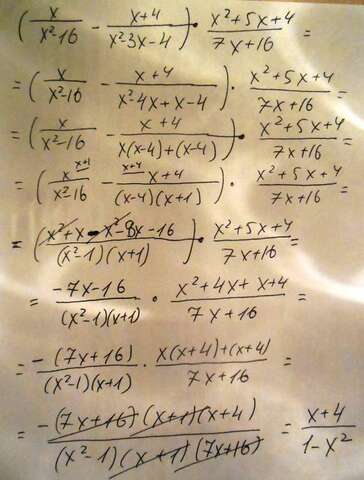 (x/(x²-16) - (x+4)/(x²-3x-4)) · (x²+5x+4)/(7x+16) =
= (x/(x²-16) - (x+4)/(x²-4x+x-4)) · (x²+5x+4)/(7x+16) =
= (x/(x²-16) - (x+4)/(x(x-4)+(x-4))) · (x²+5x+4)/(7x+16) =
= (x^(x+1)/(x²-16) - ^(x+4)(x+4)/((x-4)(x+1))) · (x²+5x+4)/(7x+16) =
= (x²+x-x²-8x-16)/((x²-1)(x+1)) · (x²+5x+4)/(7x+16) =
= (-7x-16)/((x²-1)(x+1)) · (x²+4x+x+4)/(7x+16) =
= -(7x+16)/((x²-1)(x+1)) · (x(x+4)+(x+4))/(7x+16) =
= -(7x+16)(x+1)(x+4)/((x²-1)(x+1)(7x+16)) = (x+4)/(1-x²)